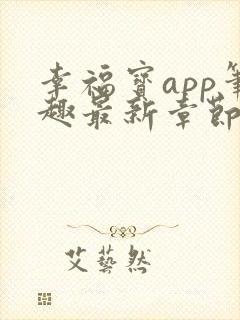 幸福寶app筆
趣最新章節
艾藝然